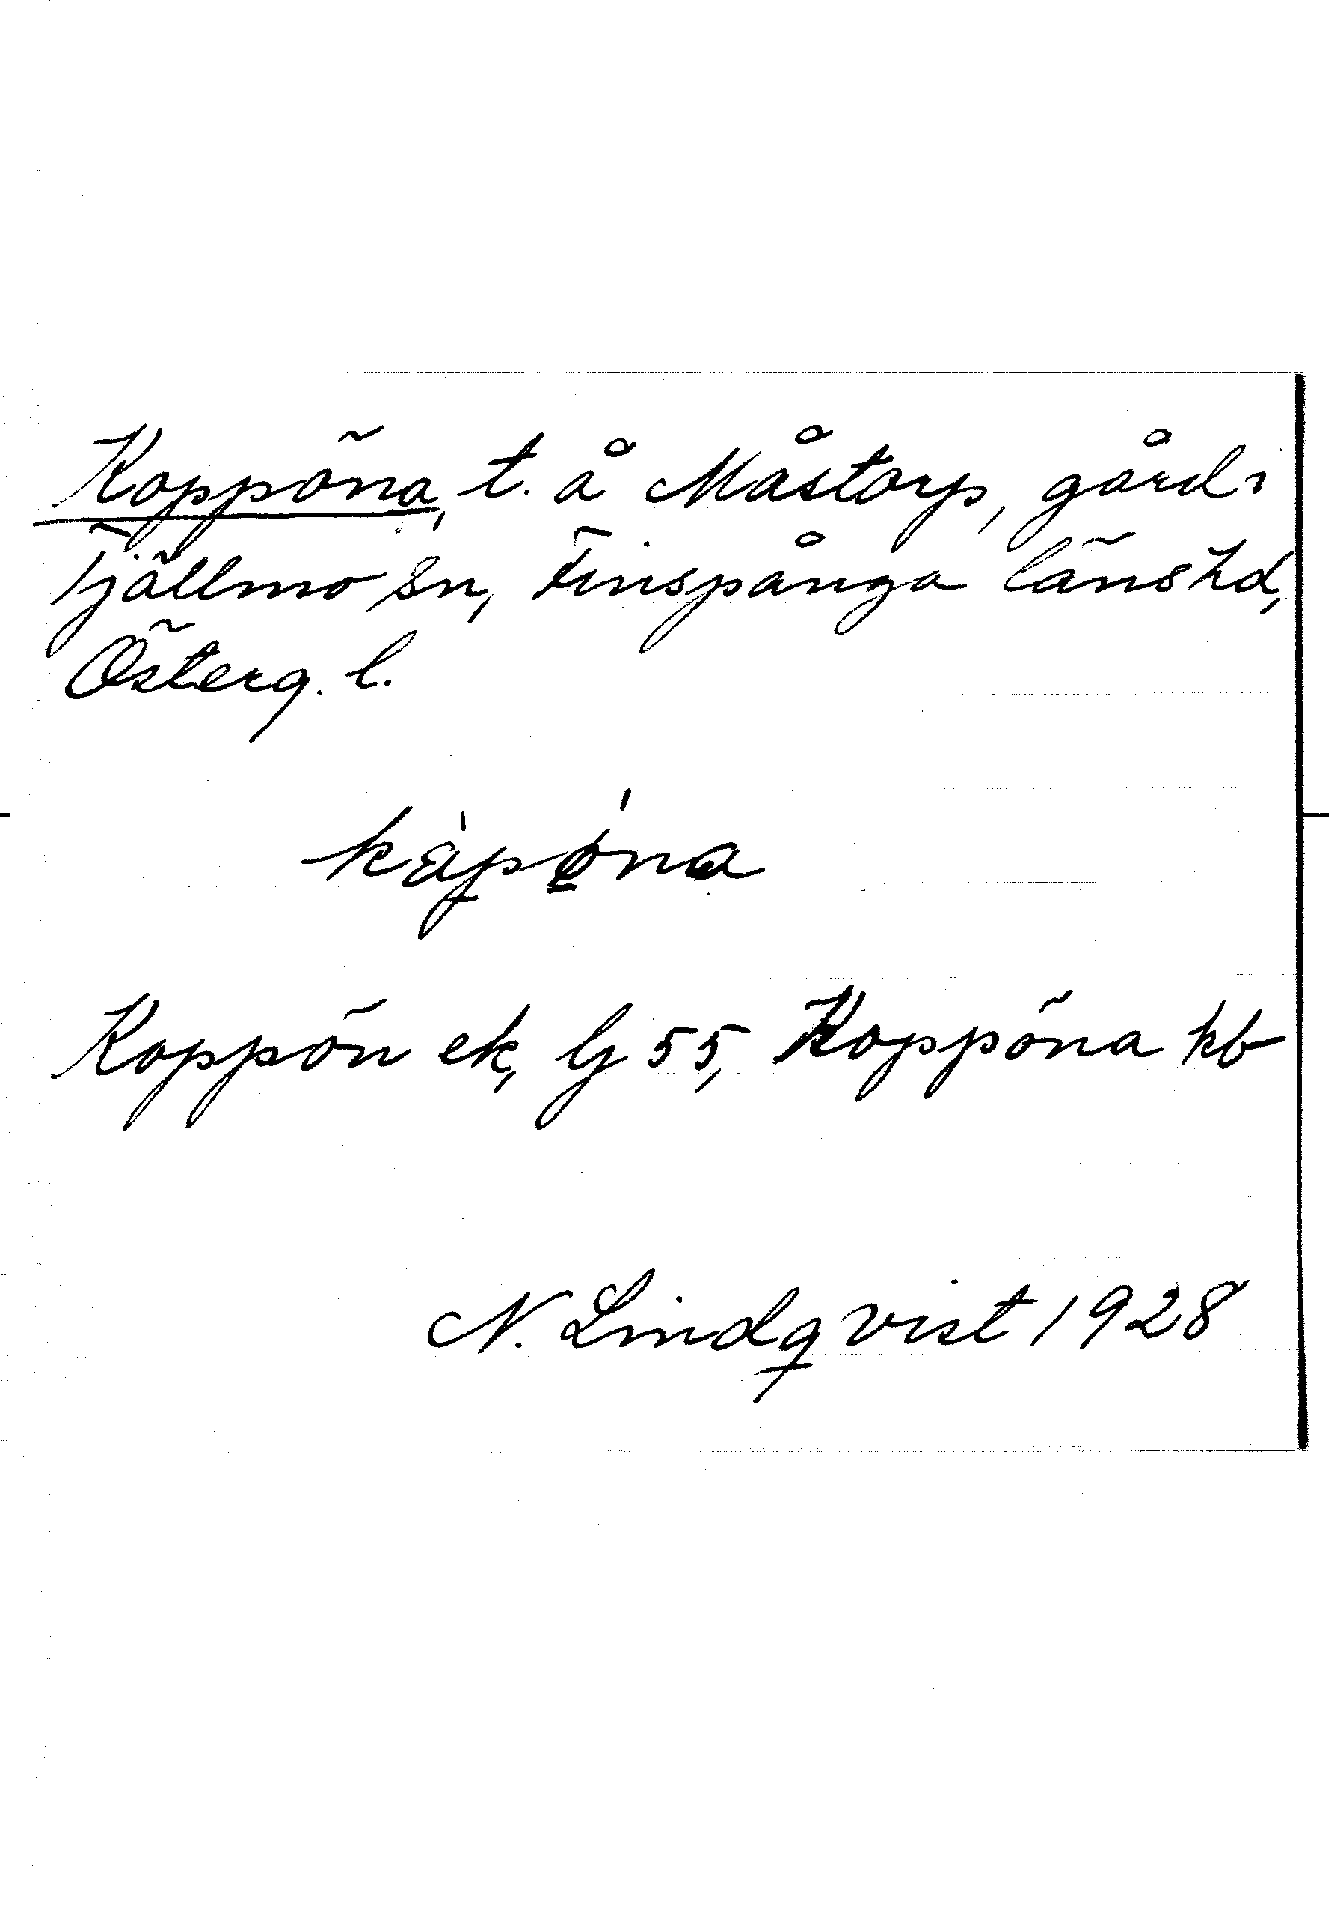 Koppöna, t. å Måstorp, gård i
Tjällmo sn, Finspånga länshd,
Österg. l.
kåpǿna
Koppön ek, lj 55, Koppöna kb
N. Lindqvist 1928